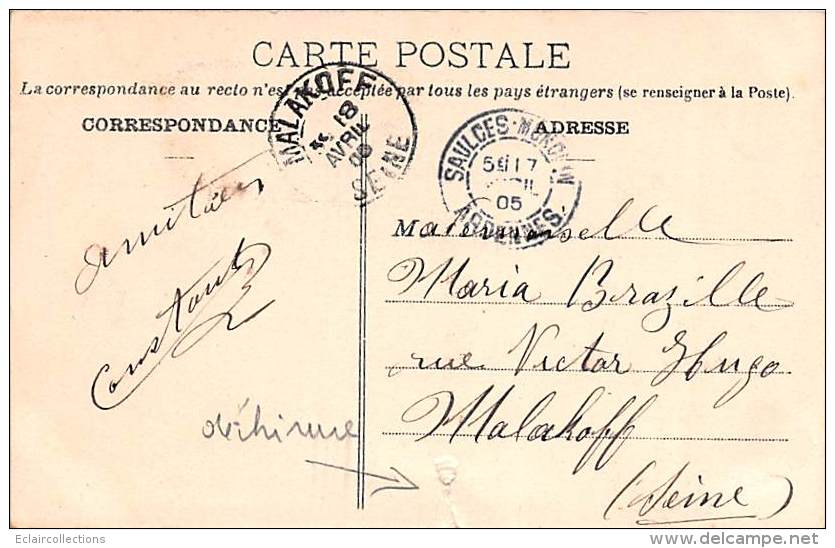 CARTE POSTALE
La correspondance au recto n'est pas acceptée par tous les pays étrangers (se renseigner à la Poste).
CORRESPONDANCE
ADRESSE
MALAKOFF
18
AVRIL
05
SEINE
SAULCES-MONCLIN
5E 17
05
ARDENNES
Amitiés
Constant
Mademoiselle
Maria Brazille
rue Victor Hugo
Malakoff
(Seine)
déchirure
Eclaircollections
delcampe.net